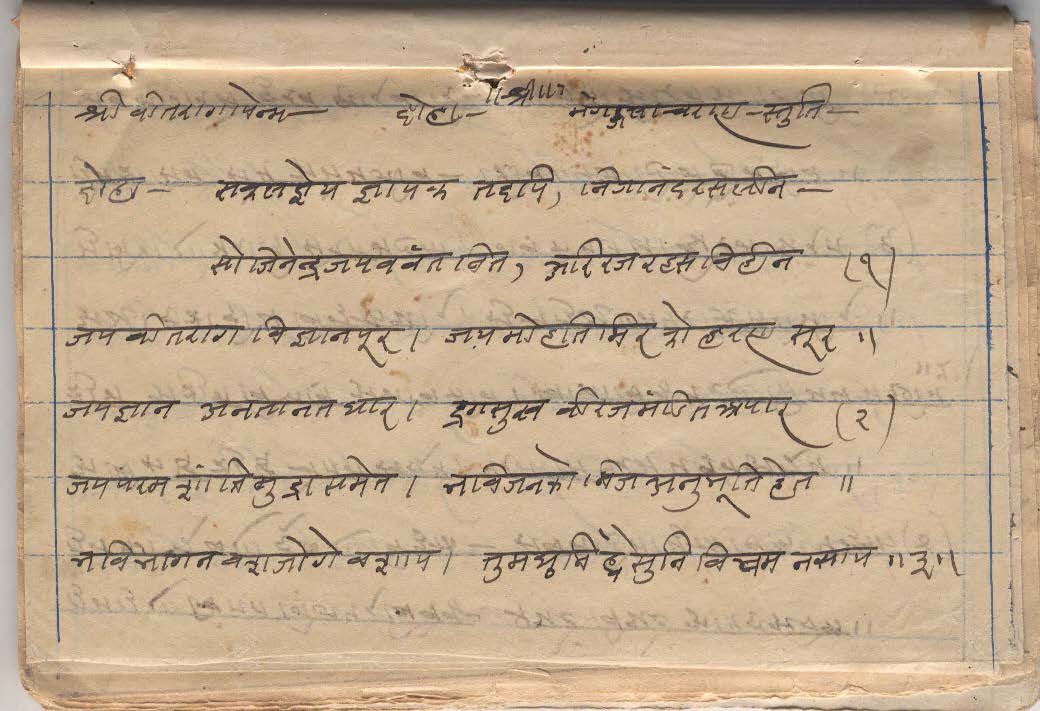 ॥श्री॥
श्री वीतरागायेन्म— दोहा— मंगलाचरण—स्तुति—
दोहा— सकलज्ञेय ज्ञायक तद्दपि, निजानंदरसलीन—
सो जिनेन्द्र जयवंत नित, अरिरजरहस विहीन (१)
जय वीतराग विज्ञानपूर। जय मोहतिमिर को हरण सूर॥
जय ज्ञान अनंतानंत धार। द्रगसुख वीरजमंडित अपार (२)
जय परम शांति मुद्रा समेत। भविजनको निज अनुभूति हेत॥
भवि भागन वशजोगे वशाय। तुमधुनि व्है सुनि विभ्रम नसाय॥३॥